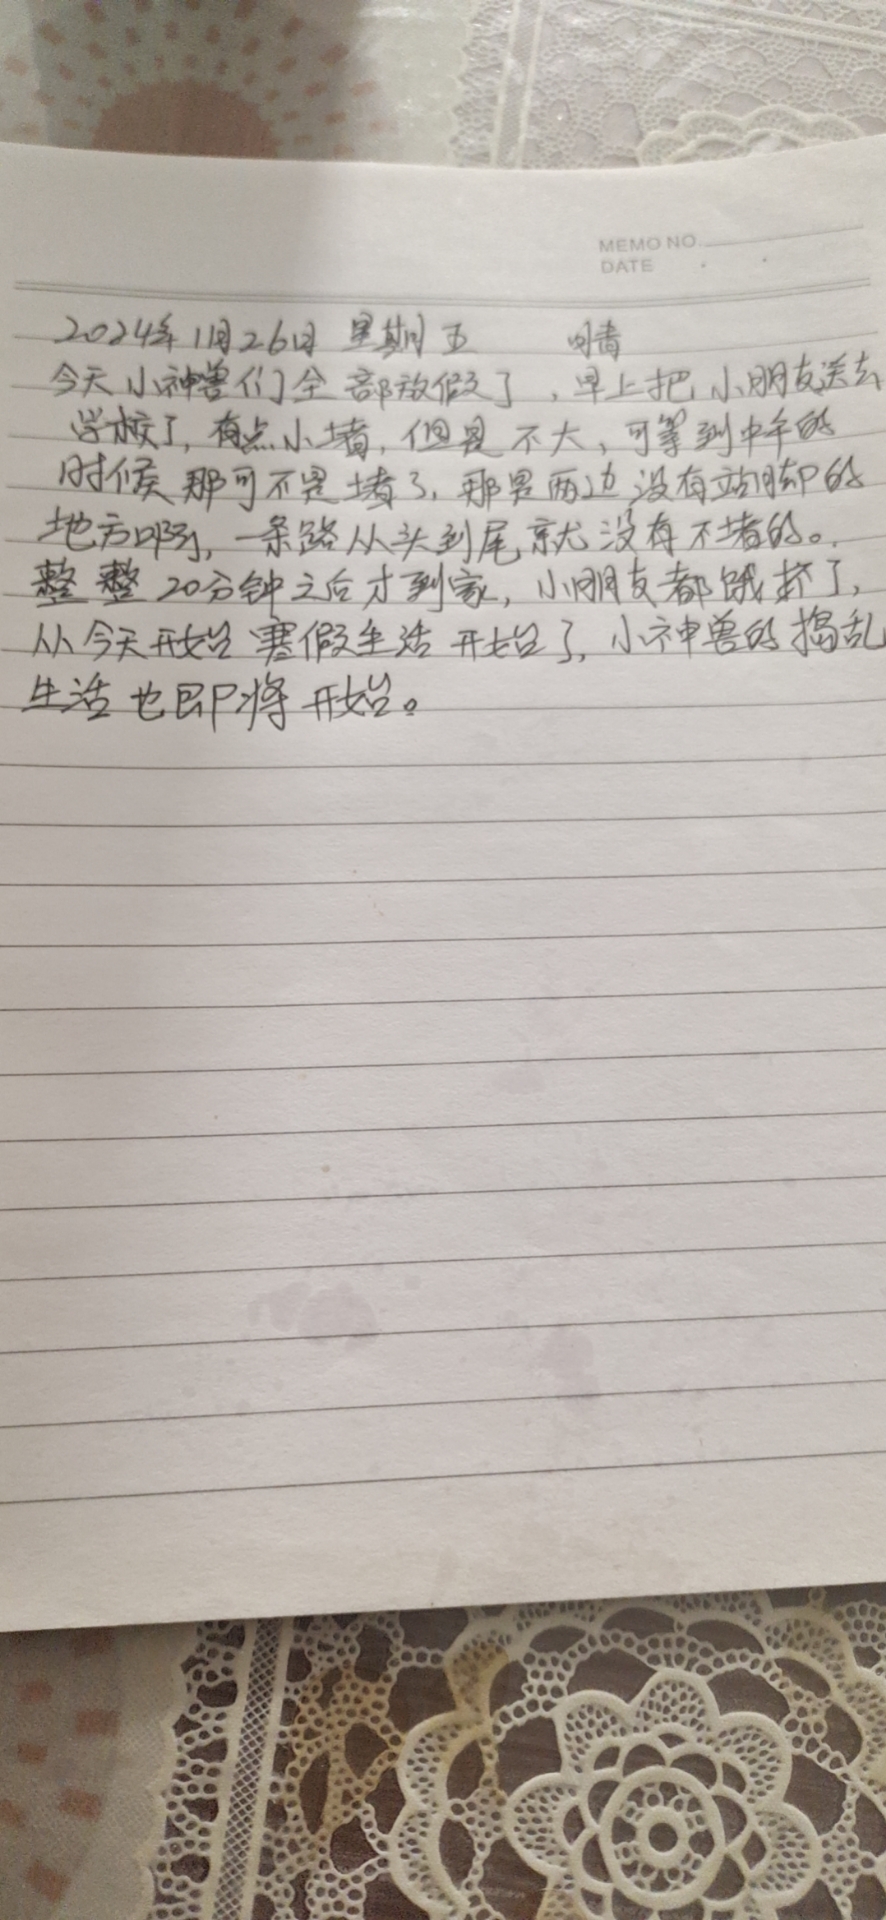 MEMO NO.
DATE
2024年11月26日 星期五 晴
今天小神兽们全部放假了,早上把小朋友送去
学校了,有点小堵,但是不大,可等到中午的
时候那可不是堵了,那是两边没有站脚的
地方啊,一条路从头到尾就没有不堵的。
整整20分钟之后才到家,小朋友都饿坏了,
从今天开始寒假生活开始了,小神兽的捣乱
生活也即将开始。